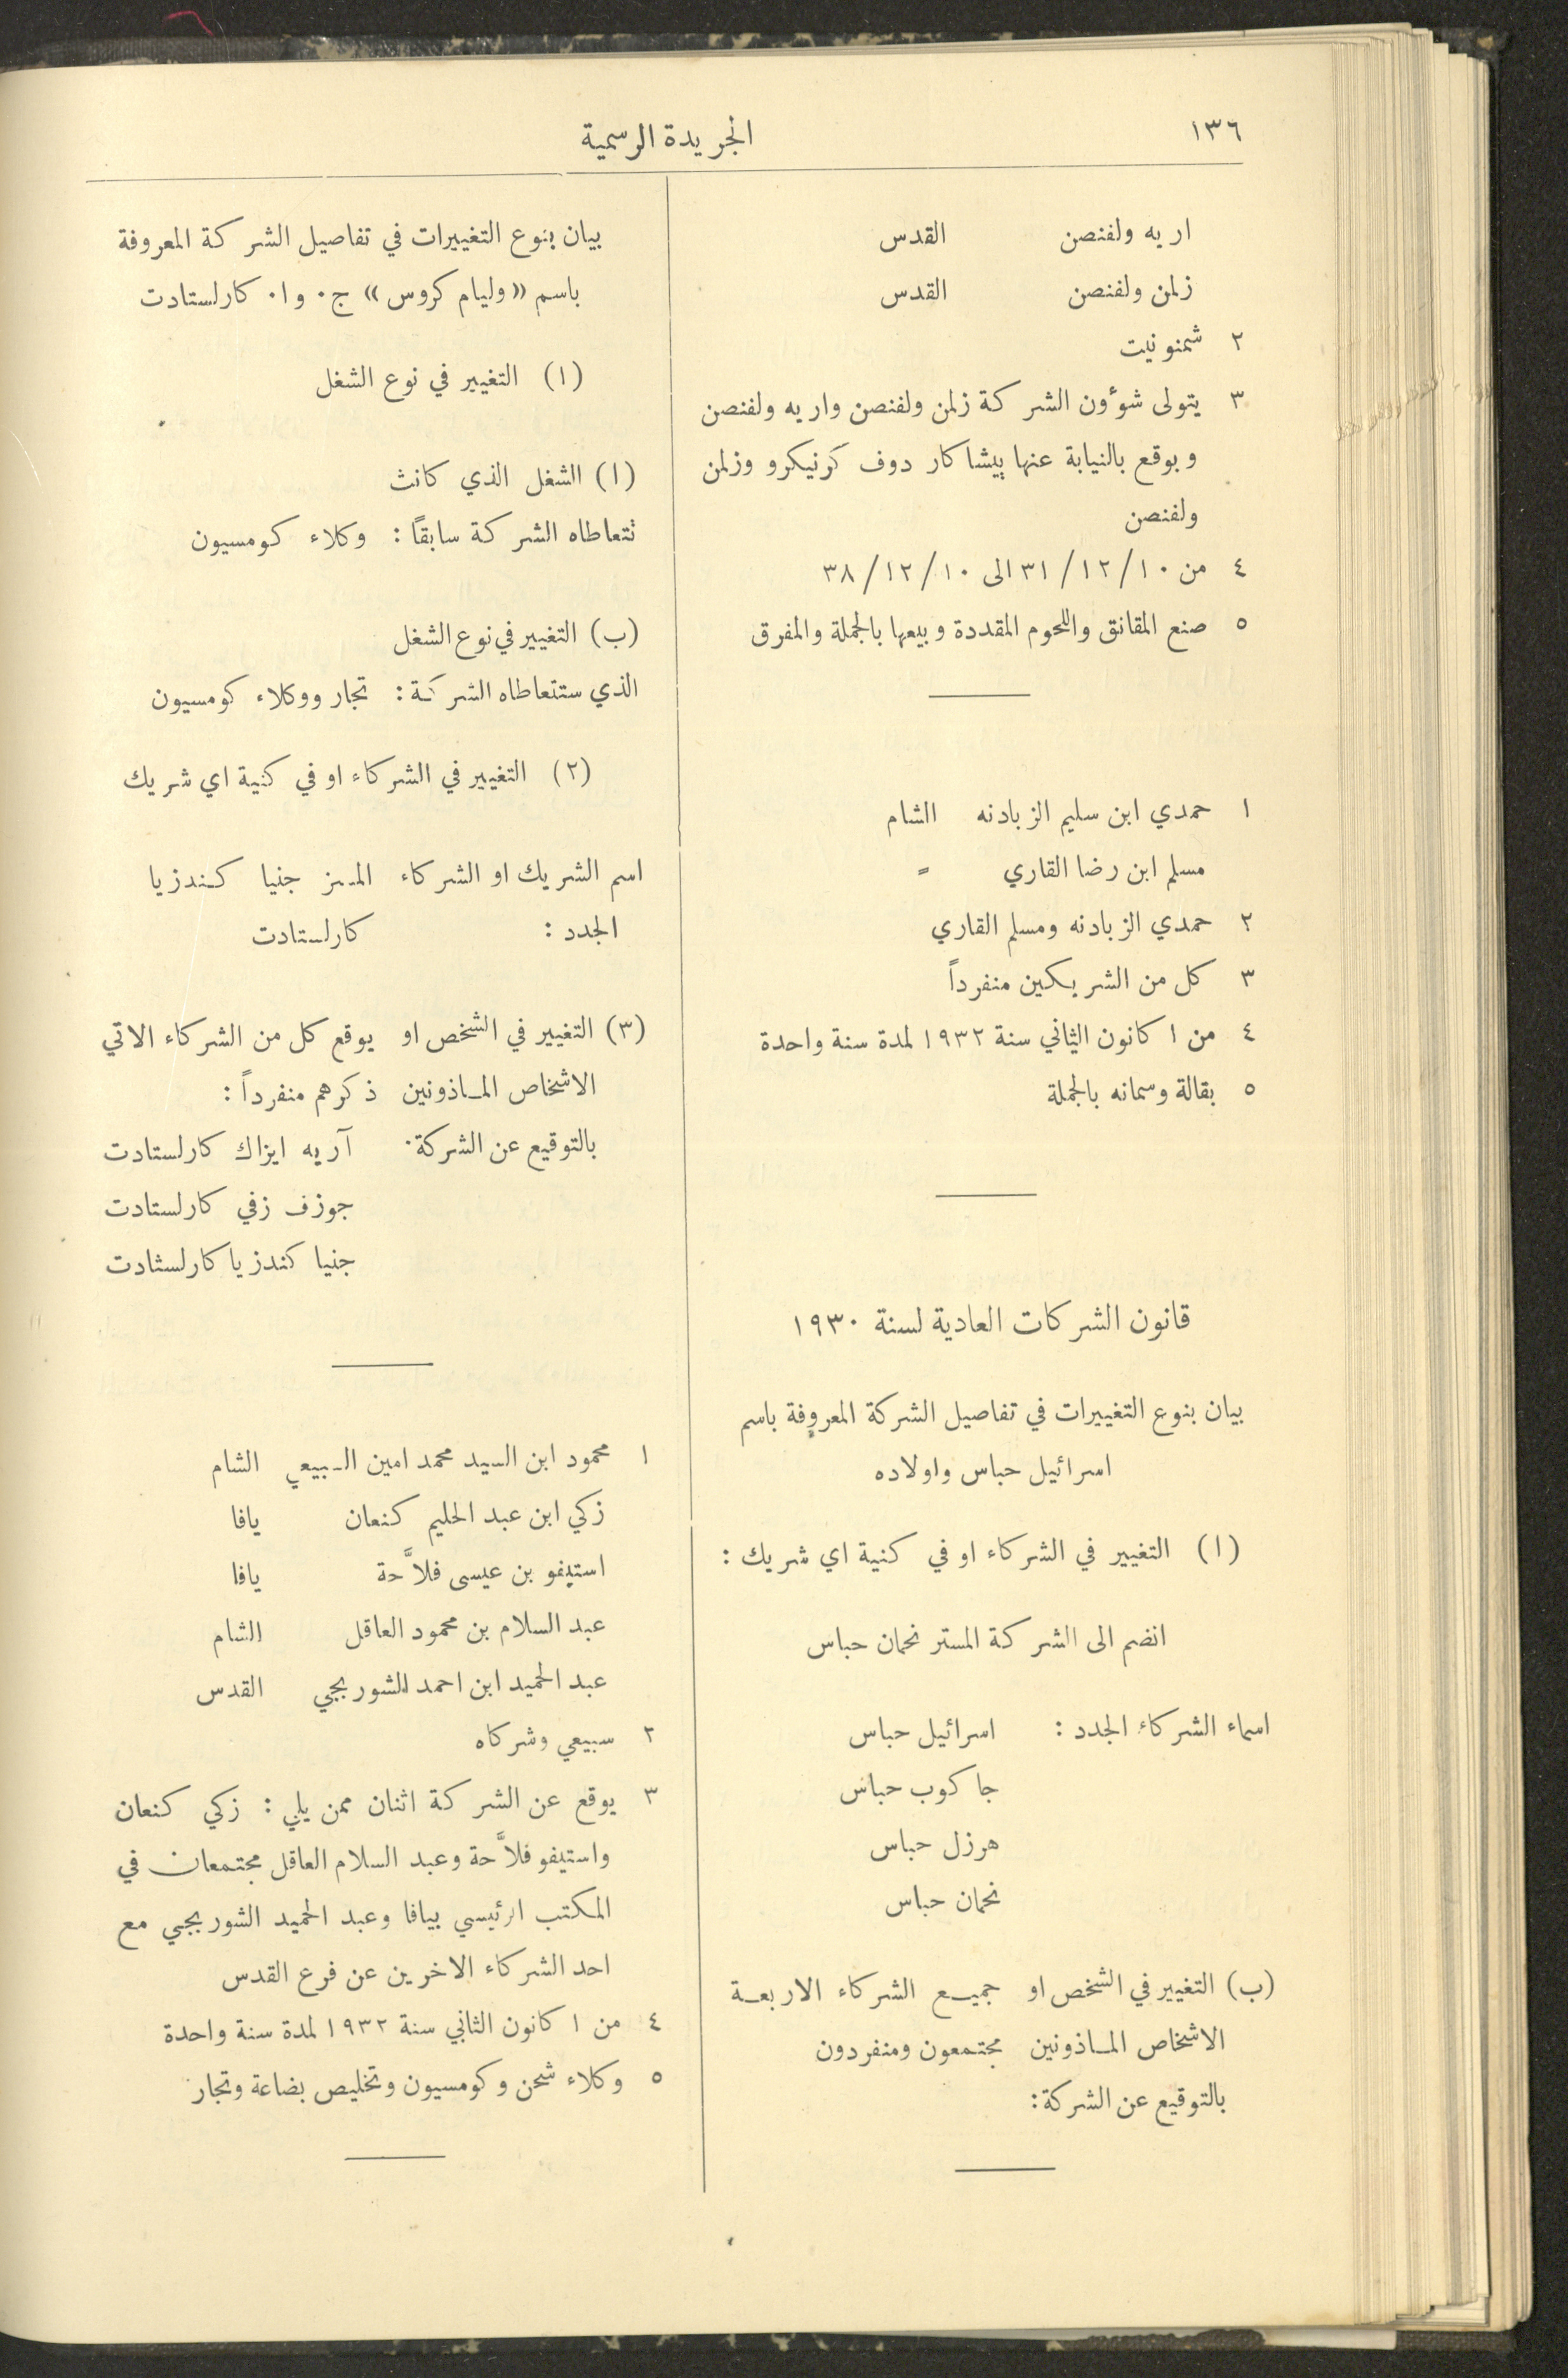 ١٣٦
الجريدة الرسمية
اريه ولفنصن القدس
زلمن ولفنصن القدس
٢ شمنونيت
٣ يتولى شوٴون الشركة زلمن ولفنصن واريه ولفنصن
ويوقع بالنيابة عنها بيشاكار دوف كرنيكرو وزلمن
ولفنصن
٤ من ١٠/١٢/٣١ الى ١٠/١٢/٣٨
٥ صنع المقانق واللحوم المقددة وبيعها بالجملة والمفرق
١ حمدي ابن سليم الزبادنه الشام
مسلم ابن رضا القاري =
٢ حمدي الزبادنه ومسلم القاري
٣ كل من الشريكين منفرداً
٤ من ١ كانون الثاني سنة ١٩٣٢ لمدة سنة واحدة
٥ بقالة وسمانه بالجملة
قانون الشركات العادية لسنة ١٩٣٠
بيان بنوع التغييرات في تفاصيل الشركة المعروفة باسم
اسرائيل حباس واولاده
(١) التغيير في الشركاء او في كنية اي شريك :
انضم الى الشركة المستر نحمان حباس
اسماء الشركاء الجدد : اسرائيل حباس
جاكوب حباس
هرزل حباس
نحمان حباس
(ب) التغيير في الشخص او جميع الشركاء الاربعة
الاشخاص الماذونين مجتمعون ومنفردون
بالتوقيع عن الشركة:
بيان بنوع التغييرات في تفاصيل الشركة المعروفة
باسم «وليام كروس» ج٠ وا٠ كارلستادت
(١) التغيير في نوع الشغل
(ا) الشغل الذي كانت
تتعاطاه الشركة سابقاً : وكلاء كومسيون
(ب) التغيير في نوع الشغل
الذي ستتعاطاه الشركة : تجار ووكلاء كومسيون
(٢) التغيير في الشركاء او في كنية اي شريك
اسم الشريك او الشركاء المسز جنيا كندزيا
الجدد : كارلستادت
(٣) التغيير في الشخص او يوقع كل من الشركاء الاتي
الاشخاص الماذونين ذكرهم منفرداً :
بالتوقيع عن الشركة٠ آريه ايزاك كارلستادت
جوزف زفي كارلستادت
جنيا كندزيا كارلستادت
١ محمود ابن السيد محمد امين السبيعي الشام
زكي ابن عبد الحليم كنعان يافا
استيفو بن عيسى فلاَّحة يافا
عبد السلام بن محمود العاقل الشام
عبد الحميد ابن احمد الشوربجي القدس
٢ سبيعي وشركاه
٣ يوقع عن الشركة اثنان ممن يلي : زكي كنعان
واستيفو فلاَّحة وعبد السلام العاقل مجتمعان في
المكتب الرئيسي بيافا وعبد الحميد الشوربجي مع
احد الشركاء الاخرين عن فرع القدس
٤ من ١ كانون الثاني سنة ١٩٣٢ لمدة سنة واحدة
٥ وكلاء شحن وكومسيون وتخليص بضاعة وتجار